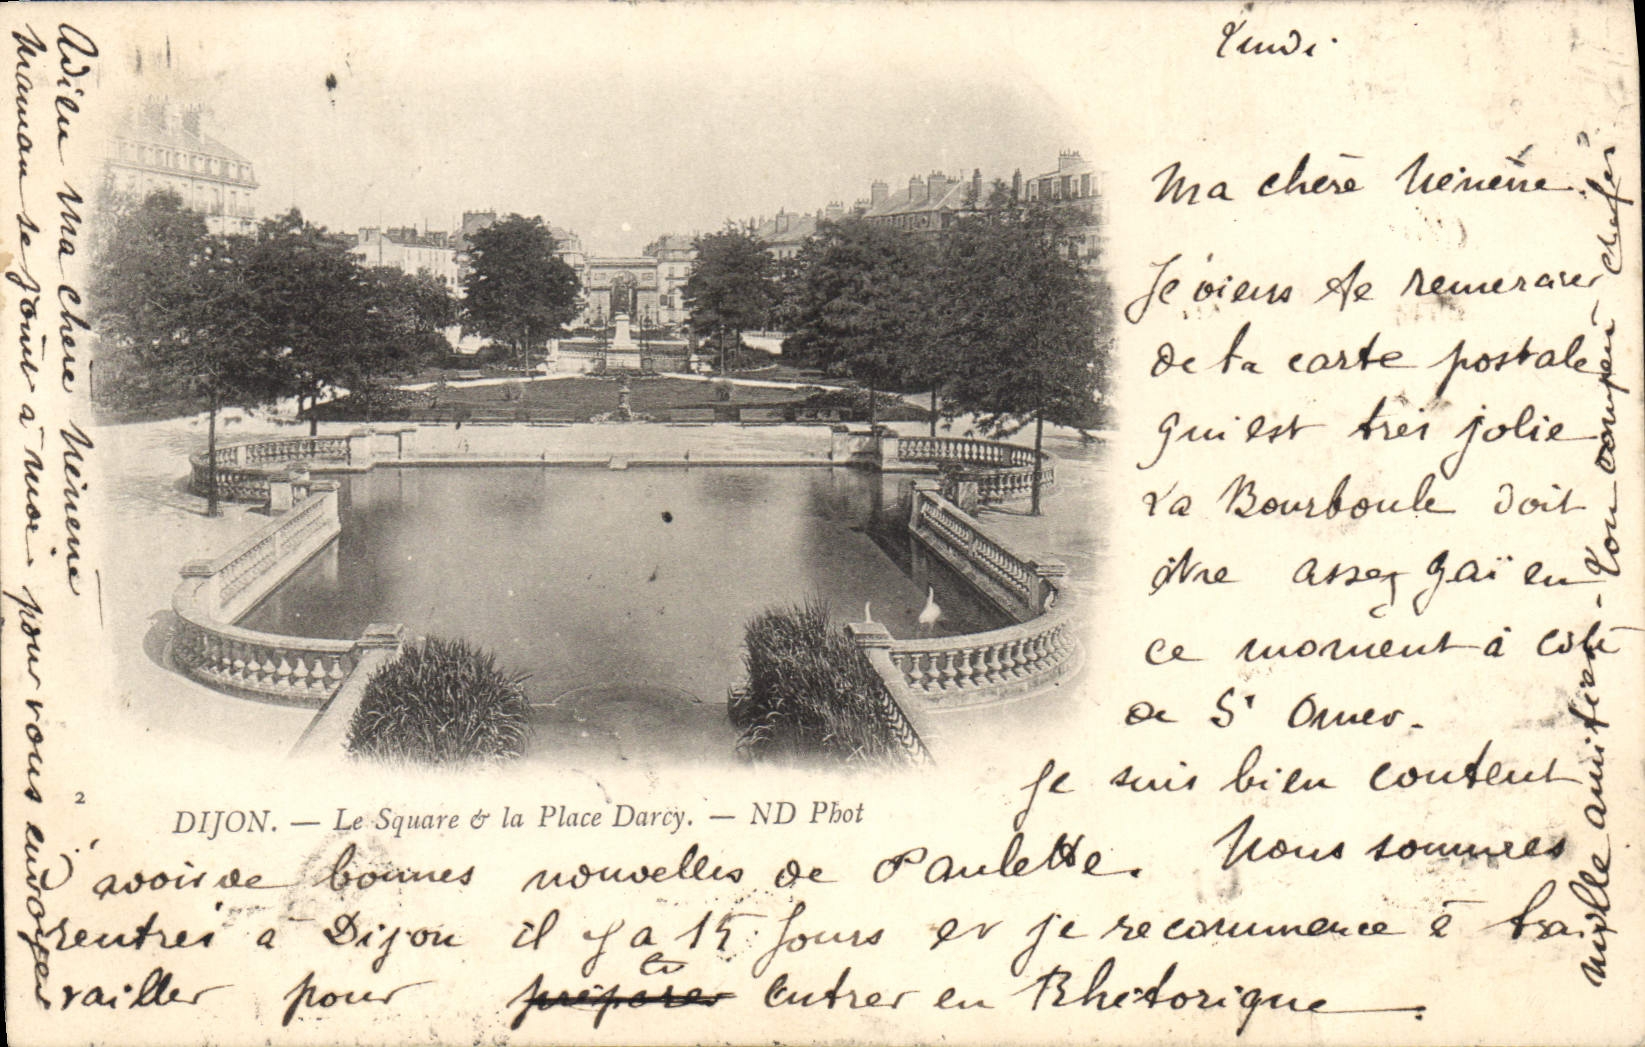 Lundi.
Ma chère Nénène.
Je viens te remercier
de ta carte postale
qui est très jolie
La Bourboule doit
être assez gaï en
ce moment à côté
de St Omer.
Je suis bien content
d'avoir de bonnes nouvelles de Paulette. Nous sommes
rentrés à Dijon il y a 15 jours et je recommence à tra-
vailler pour préparer entrer en Rhétorique.
Adieu Ma chère Nénène
Maman se joint à moi pour vous envoyer
mille amitiés. Ton
2
DIJON. — Le Square & la Place Darcy. — ND Phot